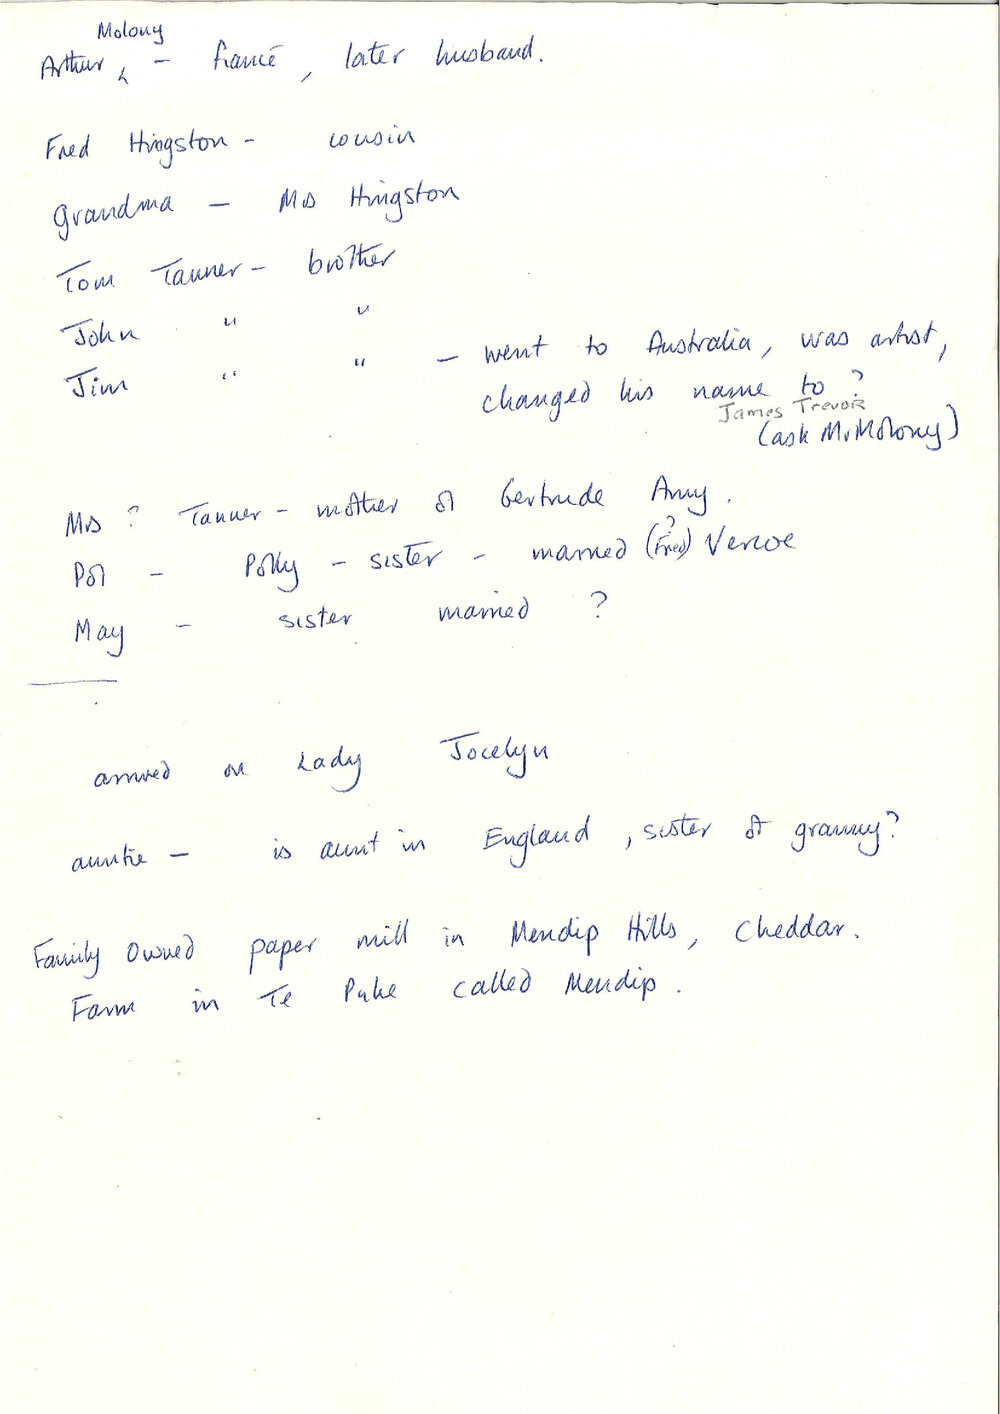 Molony
Arthur ^ - fiancé, later husband.
Fred Hingston - cousin
Grandma - Mrs Hingston
Tom Tanner - brother
John " "
Jim " " - went to Australia, was artist,
changed his name to ?
James Trevor
(ask Mr Molony)
Mrs ? Tanner - mother of Gertrude Amy.
Pol - Polly - sister - married (Fred) ? Vercoe
May - sister married ?
arrived on Lady Jocelyn
auntie - is aunt in England, sister of granny?
Family owned paper mill in Mendip Hills, Cheddar.
Farm in Te Puke called Mendip.